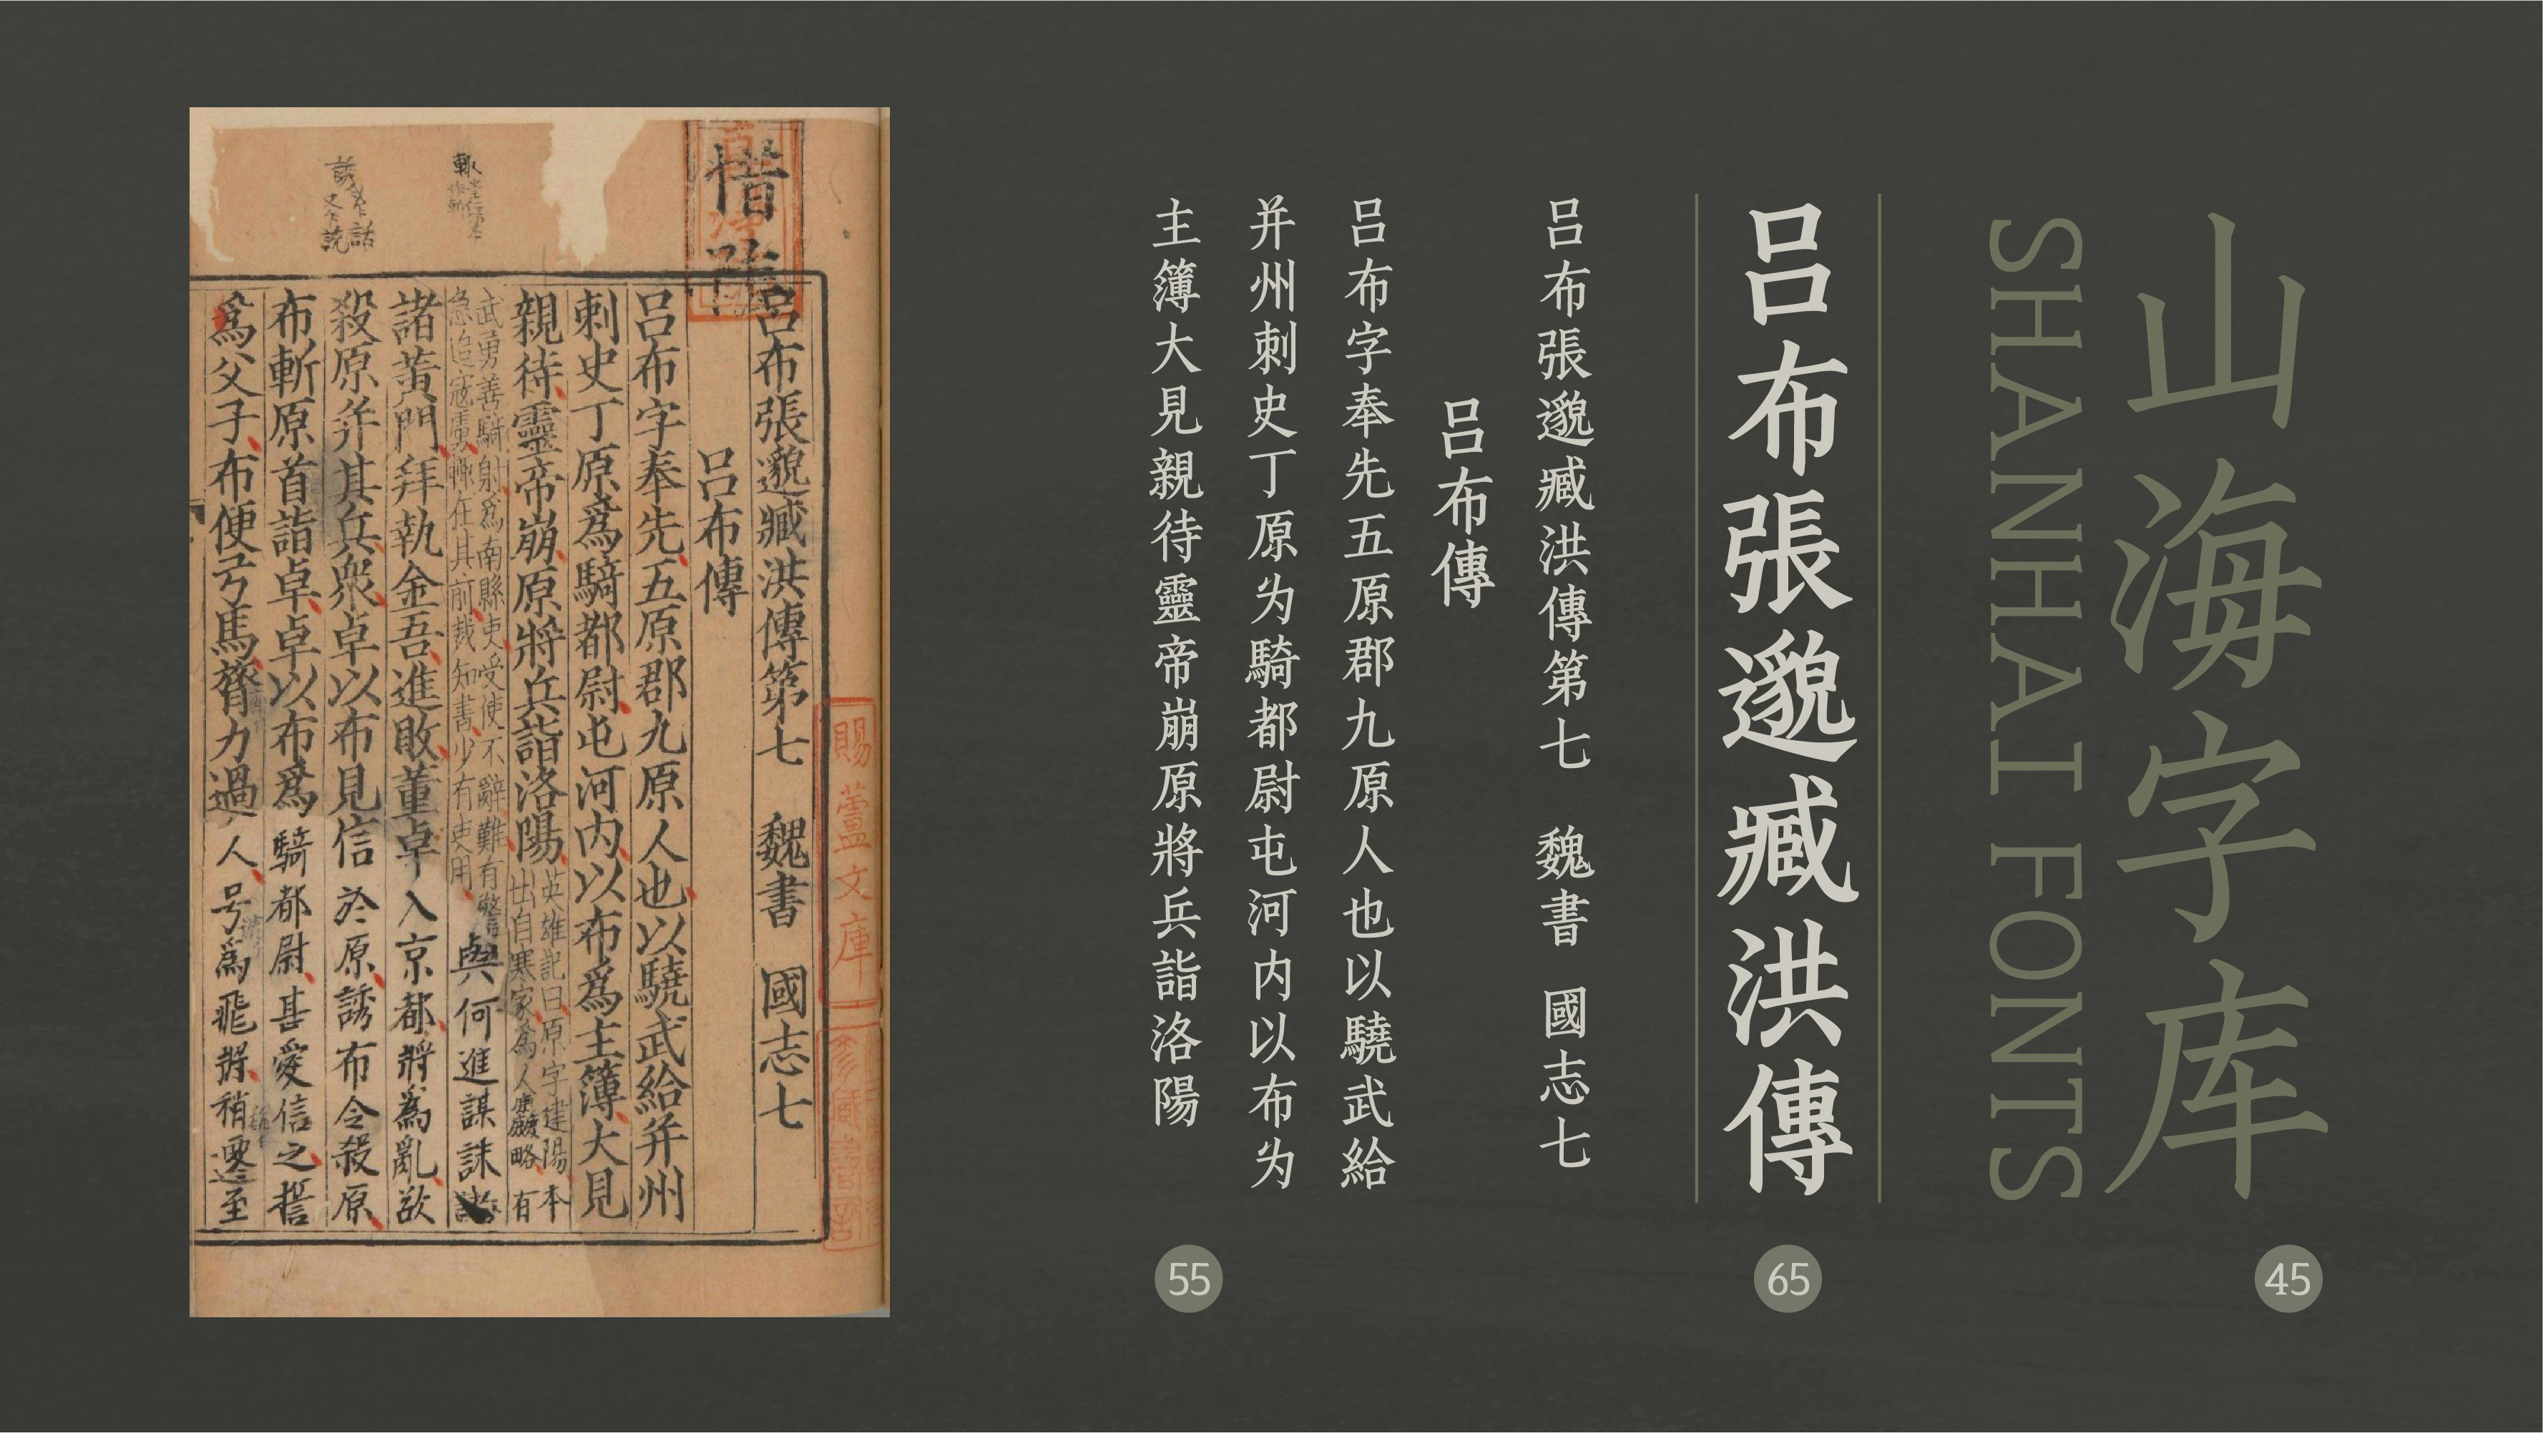 山海字库
SHANHAI FONTS
45
吕布張邈臧洪傳
65
吕布張邈臧洪傳第七 魏書 國志七
吕布傳
吕布字奉先五原郡九原人也以驍武給
并州刺史丁原为騎都尉屯河内以布为
主簿大見親待靈帝崩原將兵詣洛陽
55
惜陰
吕布張邈臧洪傳第七 魏書 國志七
吕布傳
吕布字奉先五原郡九原人也以驍武給并州
刺史丁原爲騎都尉屯河内以布爲主簿大見
親待靈帝崩原將兵詣洛陽
英雄記曰原字建陽本
出自寒家爲人麤略有
武勇善騎射爲南縣吏受使不辭難有警
急追寇虜輒在其前裁知書少有吏用
與何進謀誅
諸黄門拜執金吾進敗董卓入京都將爲亂欲
殺原并其兵衆卓以布見信於原誘布令殺原
布斬原首詣卓卓以布爲騎都尉甚愛信之誓
爲父子布便弓馬膂力過人号爲飛將稍遷至
賜蘆文庫